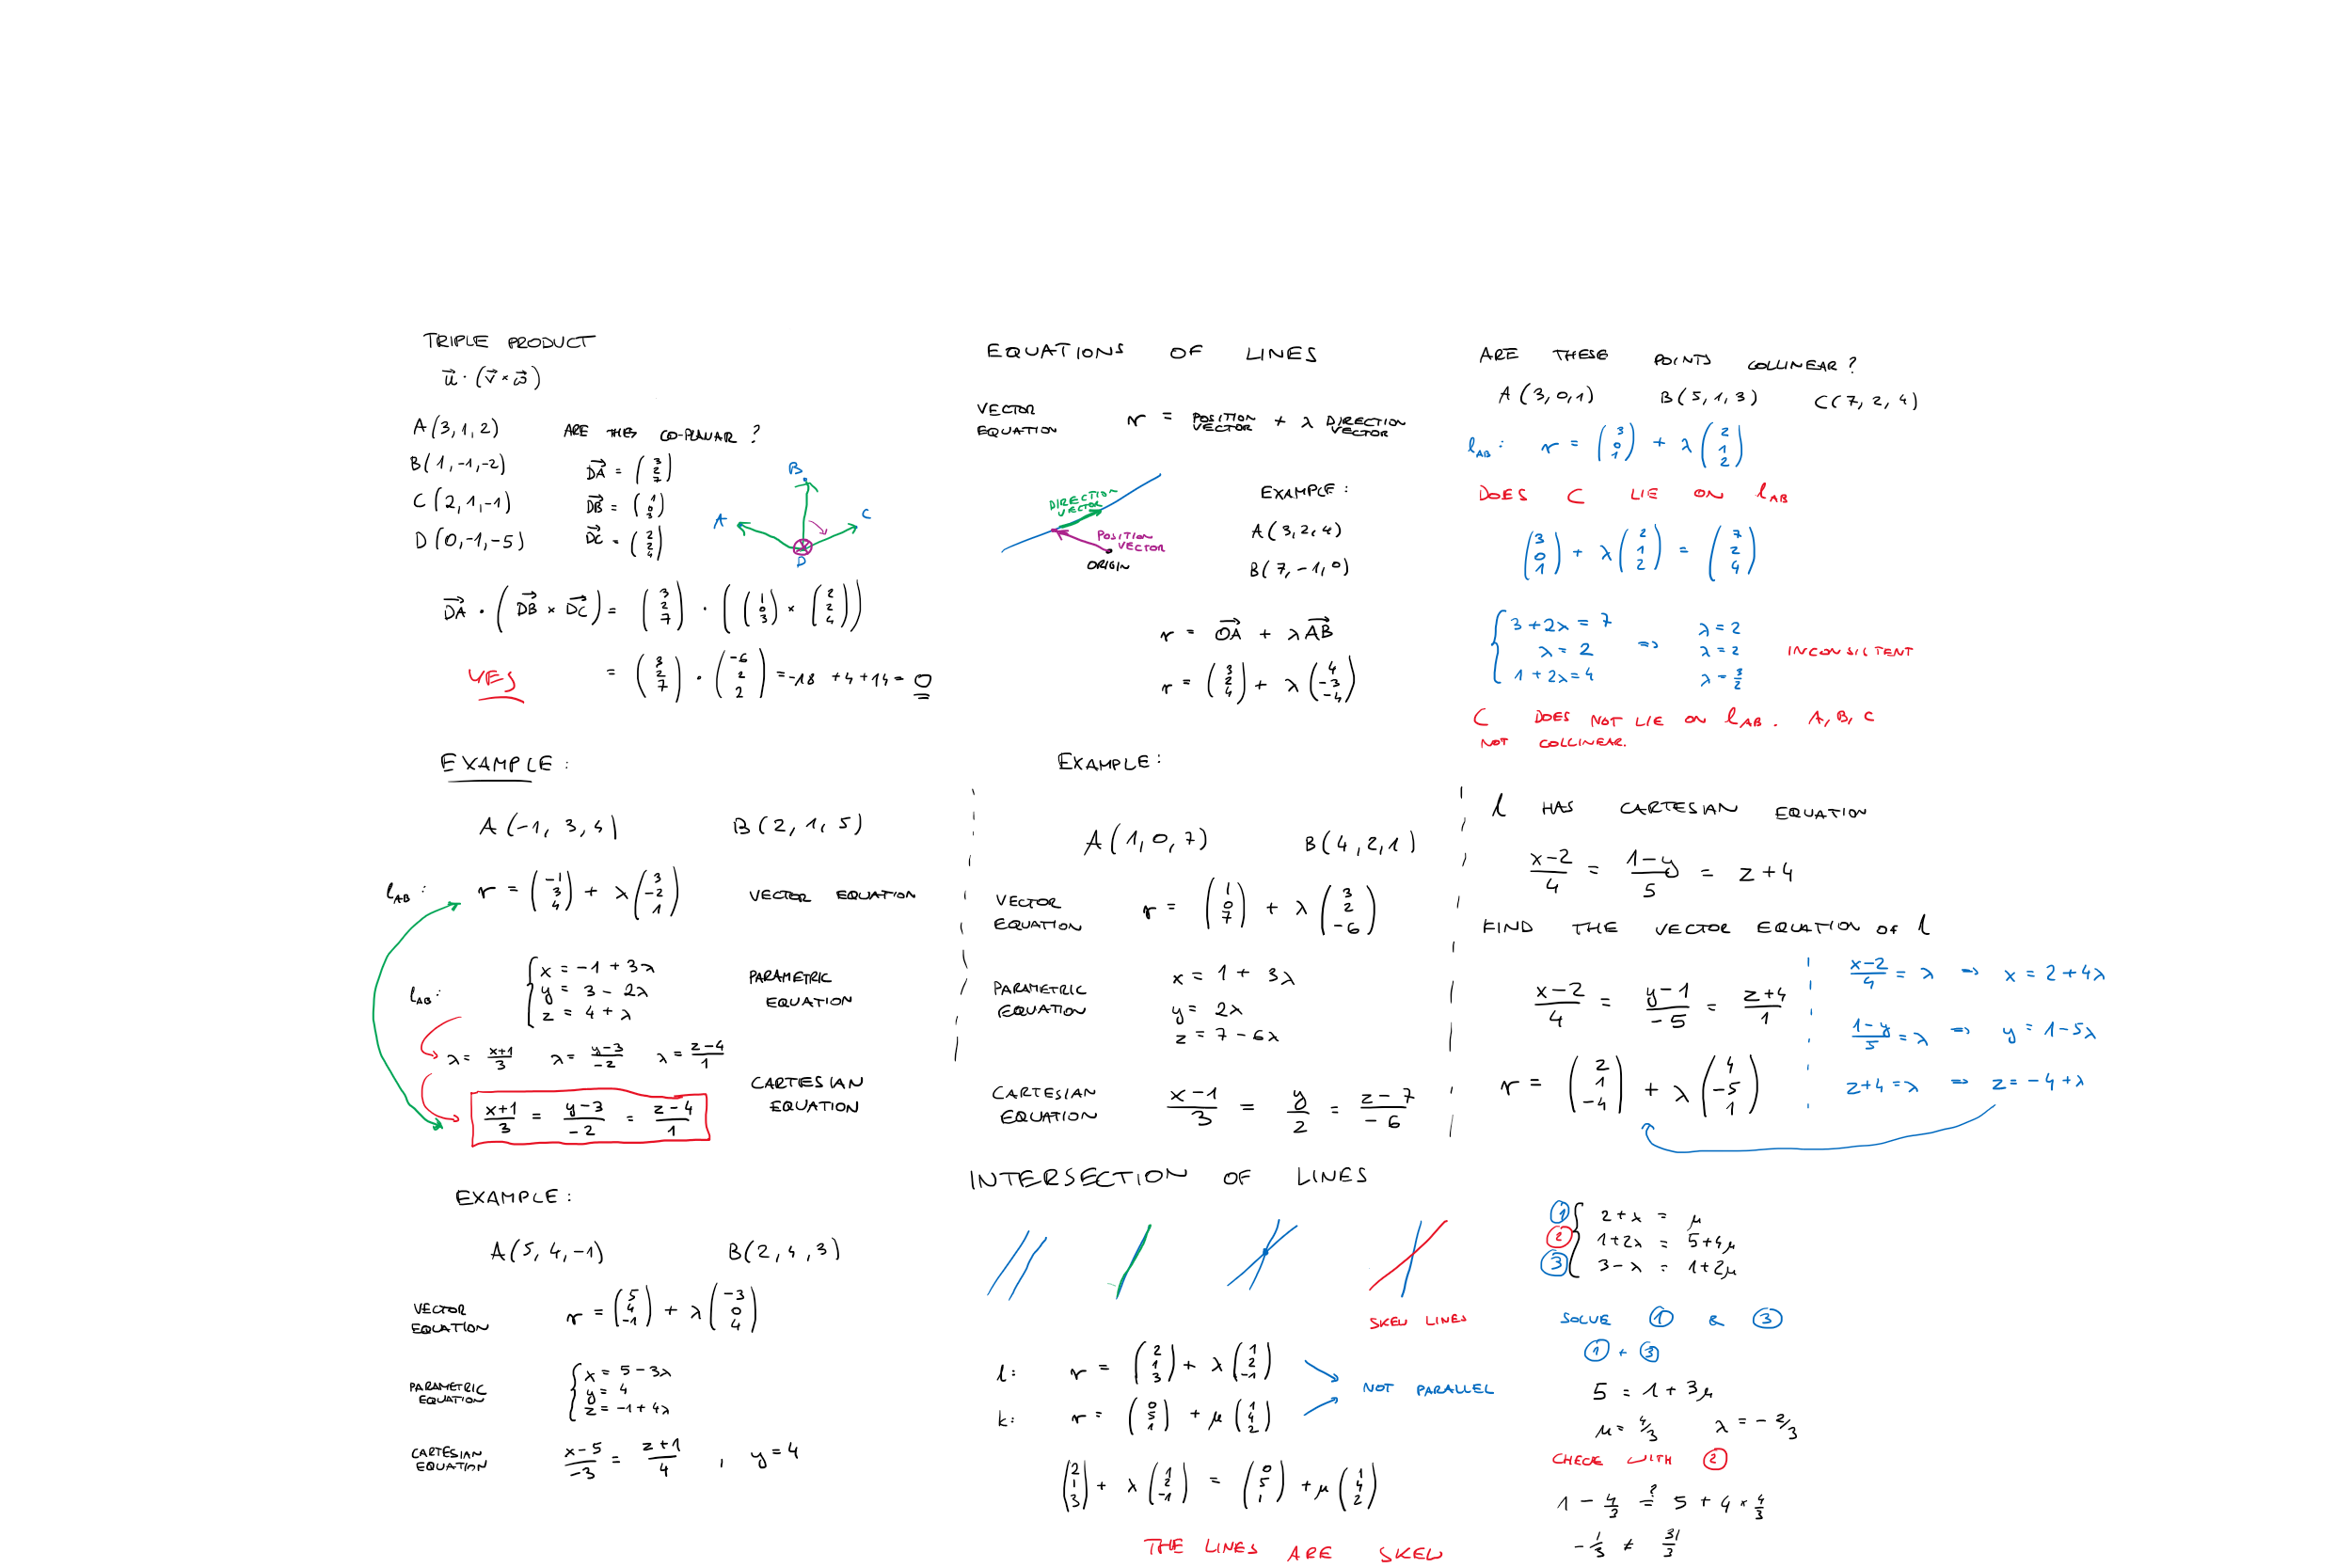 TRIPLE PRODUCT
u⃗ · (v⃗ × ω⃗)
A(3,1,2) ARE THEY CO-PLANAR ?
B(1,-1,-2) DA⃗ = (3 2 7)
C(2,1,-1) DB⃗ = (1 0 3)
D(0,-1,-5) DC⃗ = (2 2 4)
B
A
C
D
DA⃗ · (DB⃗ × DC⃗) = (3 2 7) · ((1 0 3) × (2 2 4))
YES = (3 2 7) · (-6 2 2) = -18 + 4 + 14 = 0
EQUATIONS OF LINES
VECTOR EQUATION r = POSITION VECTOR + λ DIRECTION VECTOR
DIRECTION VECTOR
POSITION VECTOR
ORIGIN
EXAMPLE :
A(3,2,4)
B(7,-1,0)
r = OA⃗ + λ AB⃗
r = (3 2 4) + λ (4 -3 -4)
ARE THESE POINTS COLLINEAR ?
A(3,0,1) B(5,1,3) C(7,2,4)
l_AB : r = (3 0 1) + λ (2 1 2)
DOES C LIE ON l_AB
(3 0 1) + λ (2 1 2) = (7 2 4)
3 + 2λ = 7 λ = 2
λ = 2 => λ = 2 INCONSISTENT
1 + 2λ = 4 λ = 3/2
C DOES NOT LIE ON l_AB . A, B, C
NOT COLLINEAR.
EXAMPLE :
A(-1, 3, 4) B(2, 1, 5)
l_AB : r = (-1 3 4) + λ (3 -2 1) VECTOR EQUATION
l_AB :
x = -1 + 3λ
y = 3 - 2λ
z = 4 + λ
PARAMETRIC
EQUATION
λ = (x+1)/3 λ = (y-3)/-2 λ = (z-4)/1
CARTESIAN
EQUATION
(x+1)/3 = (y-3)/-2 = (z-4)/1
EXAMPLE :
A(1, 0, 7) B(4, 2, 1)
VECTOR EQUATION r = (1 0 7) + λ (3 2 -6)
PARAMETRIC EQUATION
x = 1 + 3λ
y = 2λ
z = 7 - 6λ
CARTESIAN EQUATION (x-1)/3 = y/2 = (z-7)/-6
l HAS CARTESIAN EQUATION
(x-2)/4 = (1-y)/5 = z+4
FIND THE VECTOR EQUATION OF l
(x-2)/4 = (y-1)/-5 = (z+4)/1
r = (2 1 -4) + λ (4 -5 1)
(x-2)/4 = λ => x = 2 + 4λ
(1-y)/5 = λ => y = 1 - 5λ
z+4 = λ => z = -4 + λ
EXAMPLE :
A(5, 4, -1) B(2, 4, 3)
VECTOR EQUATION r = (5 4 -1) + λ (-3 0 4)
PARAMETRIC EQUATION
x = 5 - 3λ
y = 4
z = -1 + 4λ
CARTESIAN EQUATION (x-5)/-3 = (z+1)/4 , y = 4
INTERSECTION OF LINES
SKEW LINES
l: r = (2 1 3) + λ (1 2 -1)
NOT PARALLEL
k: r = (0 5 1) + μ (1 4 2)
(2 1 3) + λ (1 2 -1) = (0 5 1) + μ (1 4 2)
THE LINES ARE SKEW
① 2 + λ = μ
② 1 + 2λ = 5 + 4μ
③ 3 - λ = 1 + 2μ
SOLVE ① & ③
① + ③
5 = 1 + 3μ
μ = 4/3 λ = -2/3
CHECK WITH ②
1 - 4/3 ?= 5 + 4 × 4/3
-1/3 ≠ 31/3